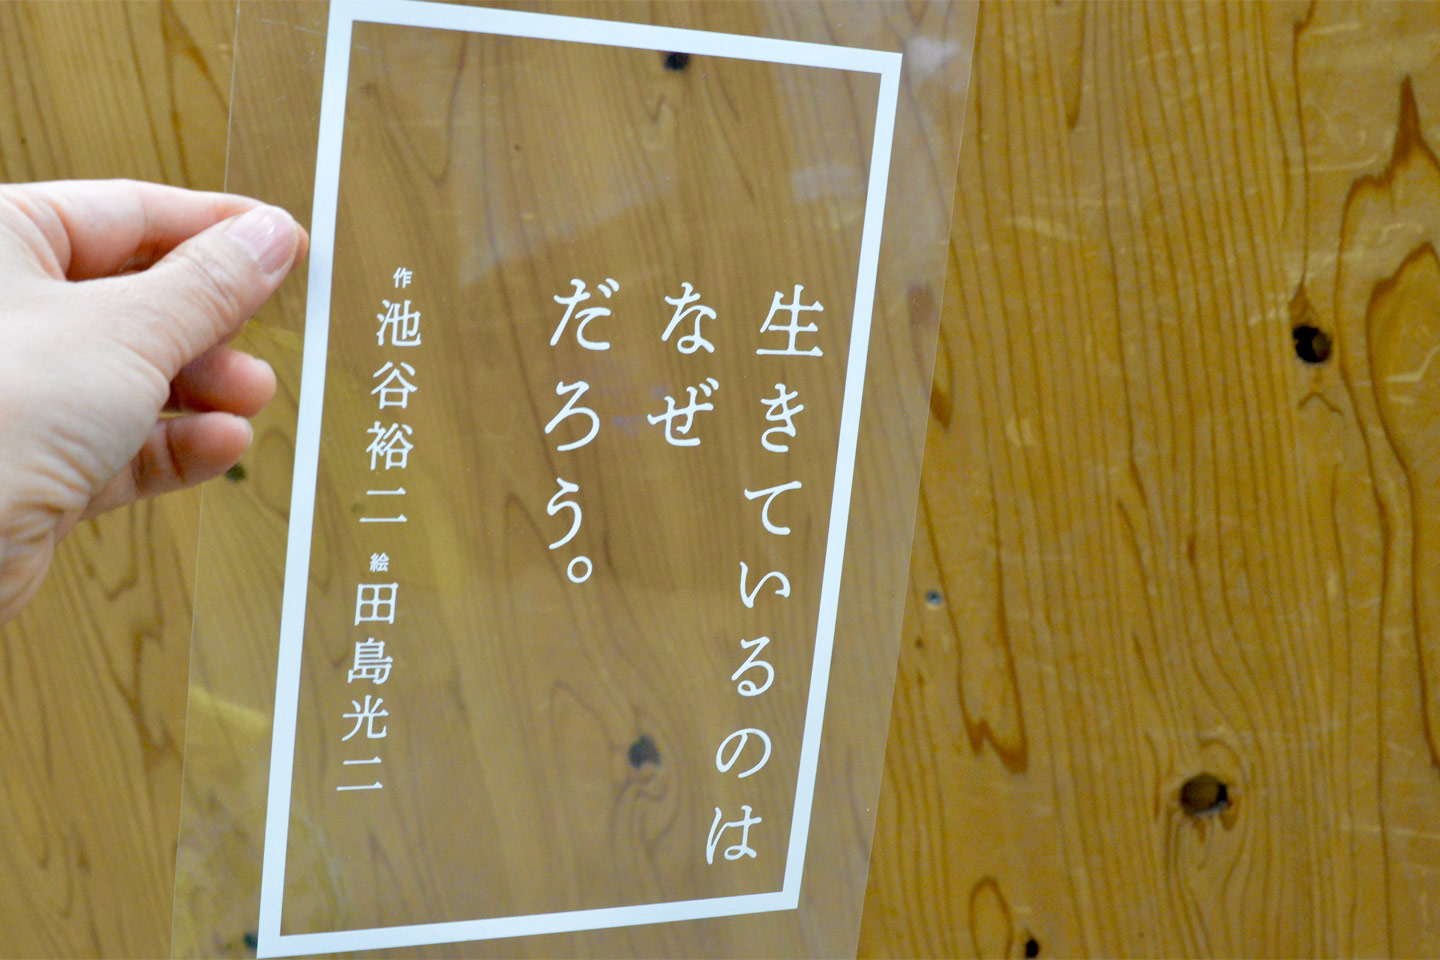 生きているのは
なぜ
だろう。
作 池谷裕二 絵 田島光二